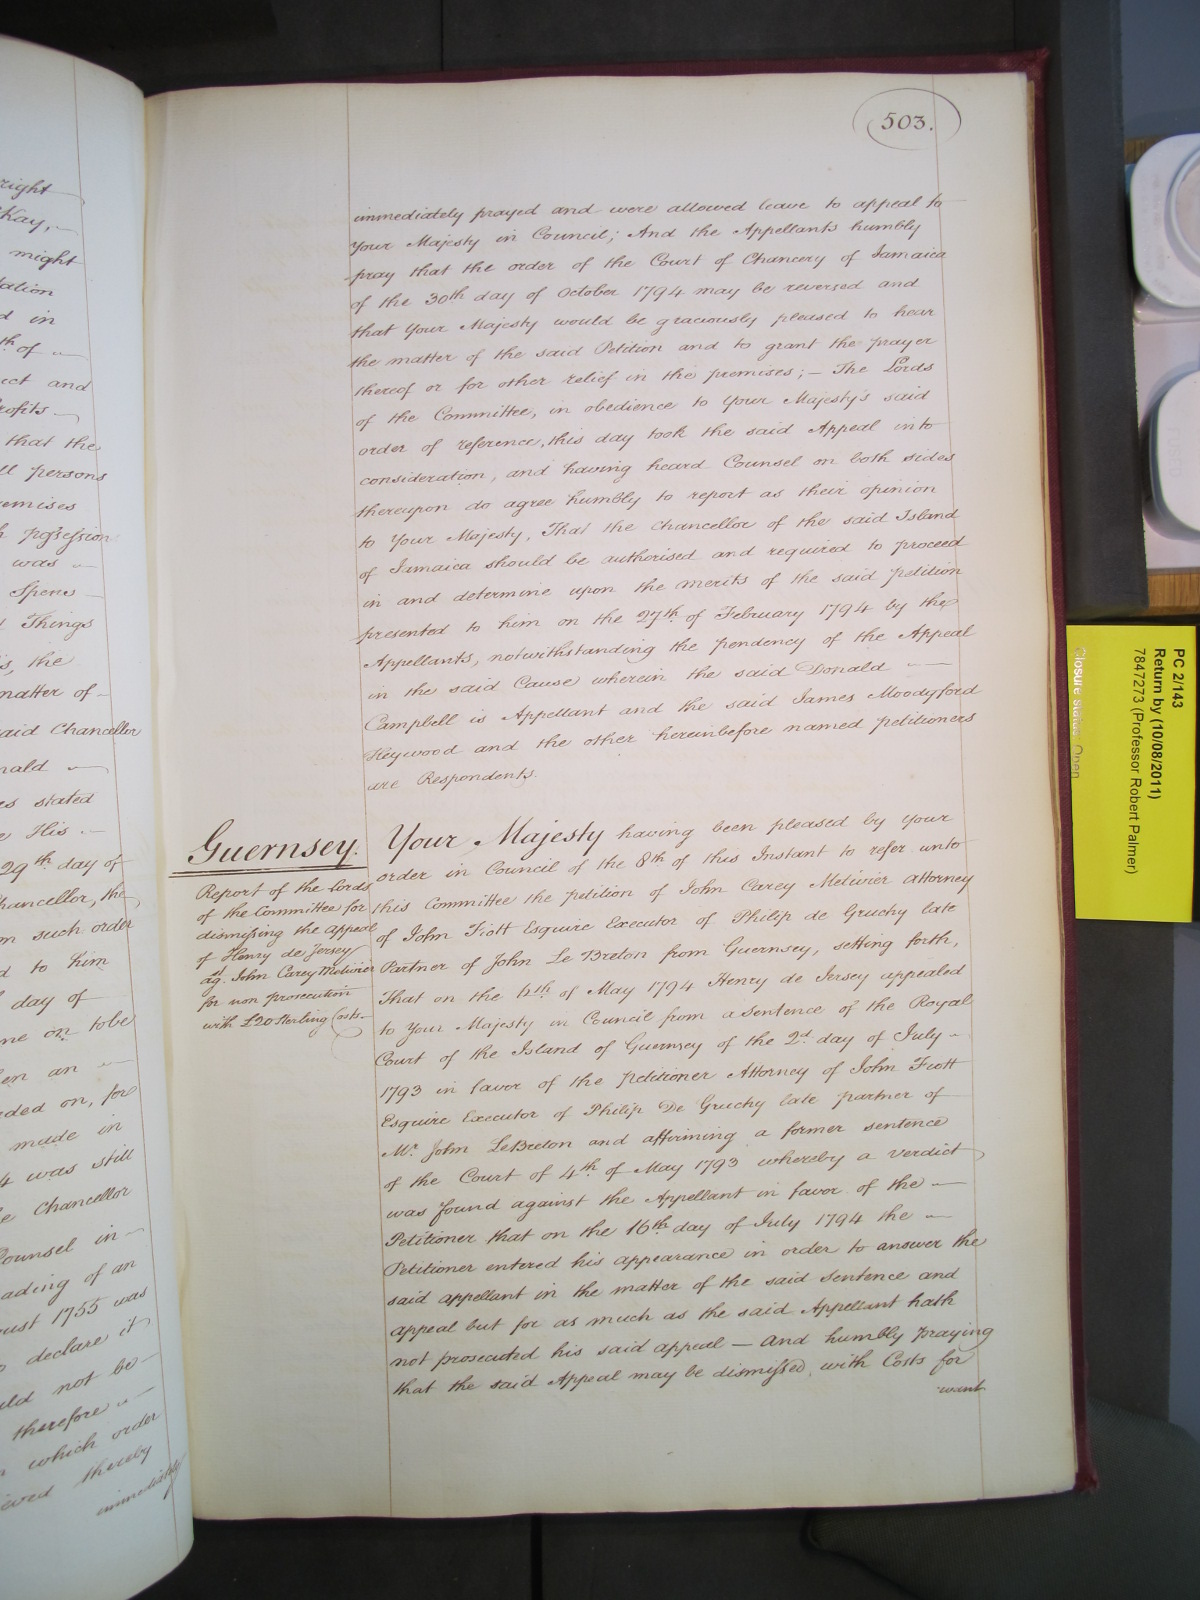 right
Kay,
might
ation
d in
th of
uct and
rofits
that the
ll persons
emises
h possession
was
Spens
Things
is, the
matter of
said Chancellor
nald
es stated
e His
29th day of
hancellor, the
m such order
d to him
day of
me on to be
en an
ded on, for
made in
4 was still
e Chancellor
Counsel in
ading of an
ust 1755 was
declare it
uld not be
therefore
which order
ieved thereby
immediately
503.
immediately prayed and were allowed leave to appeal to
Your Majesty in Council; And the Appellants humbly
pray that the order of the Court of Chancery of Jamaica
of the 30th day of October 1794 may be reversed and
that Your Majesty would be graciously pleased to hear
the matter of the said Petition and to grant the prayer
thereof or for other relief in the premises; — The Lords
of the Committee, in obedience to Your Majesty's said
order of reference, this day took the said Appeal into
consideration, and having heard Counsel on both sides
thereupon do agree humbly to report as their opinion
to Your Majesty, That the Chancellor of the said Island
of Jamaica should be authorised and required to proceed
in and determine upon the merits of the said petition
presented to him on the 27th of February 1794 by the
Appellants, notwithstanding the pendency of the Appeal
in the said Cause wherein the said Donald
Campbell is Appellant and the said James Moodyford
Heywood and the other hereinbefore named petitioners
are Respondents.
Guernsey.
Report of the Lords
of the Committee for
dismissing the appeal
of Henry de Jersey
agt. John Carey Metivier
for non prosecution
with £20 Sterling Costs
Your Majesty having been pleased by your
order in Council of the 8th of this Instant to refer unto
this Committee the petition of John Carey Metivier attorney
of John Fiott Esquire Executor of Philip de Gruchy late
Partner of John Le Breton from Guernsey, setting forth,
That on the 4th of May 1794 Henry de Jersey appealed
to Your Majesty in Council from a Sentence of the Royal
Court of the Island of Guernsey of the 2d day of July
1793 in favor of the petitioner Attorney of John Fiott
Esquire Executor of Philip De Gruchy late partner of
Mr. John LeBreton and affirming a former sentence
of the Court of 4th of May 1793 whereby a verdict
was found against the Appellant in favor of the
Petitioner that on the 16th day of July 1794 the
Petitioner entered his appearance in order to answer the
said appellant in the matter of the said Sentence and
appeal but for as much as the said Appellant hath
not prosecuted his said appeal — And humbly praying
that the said Appeal may be dismissed, with Costs for
want
PC 2/143
Return by (10/08/2011)
7847273 (Professor Robert Palmer)
Closure status: Open